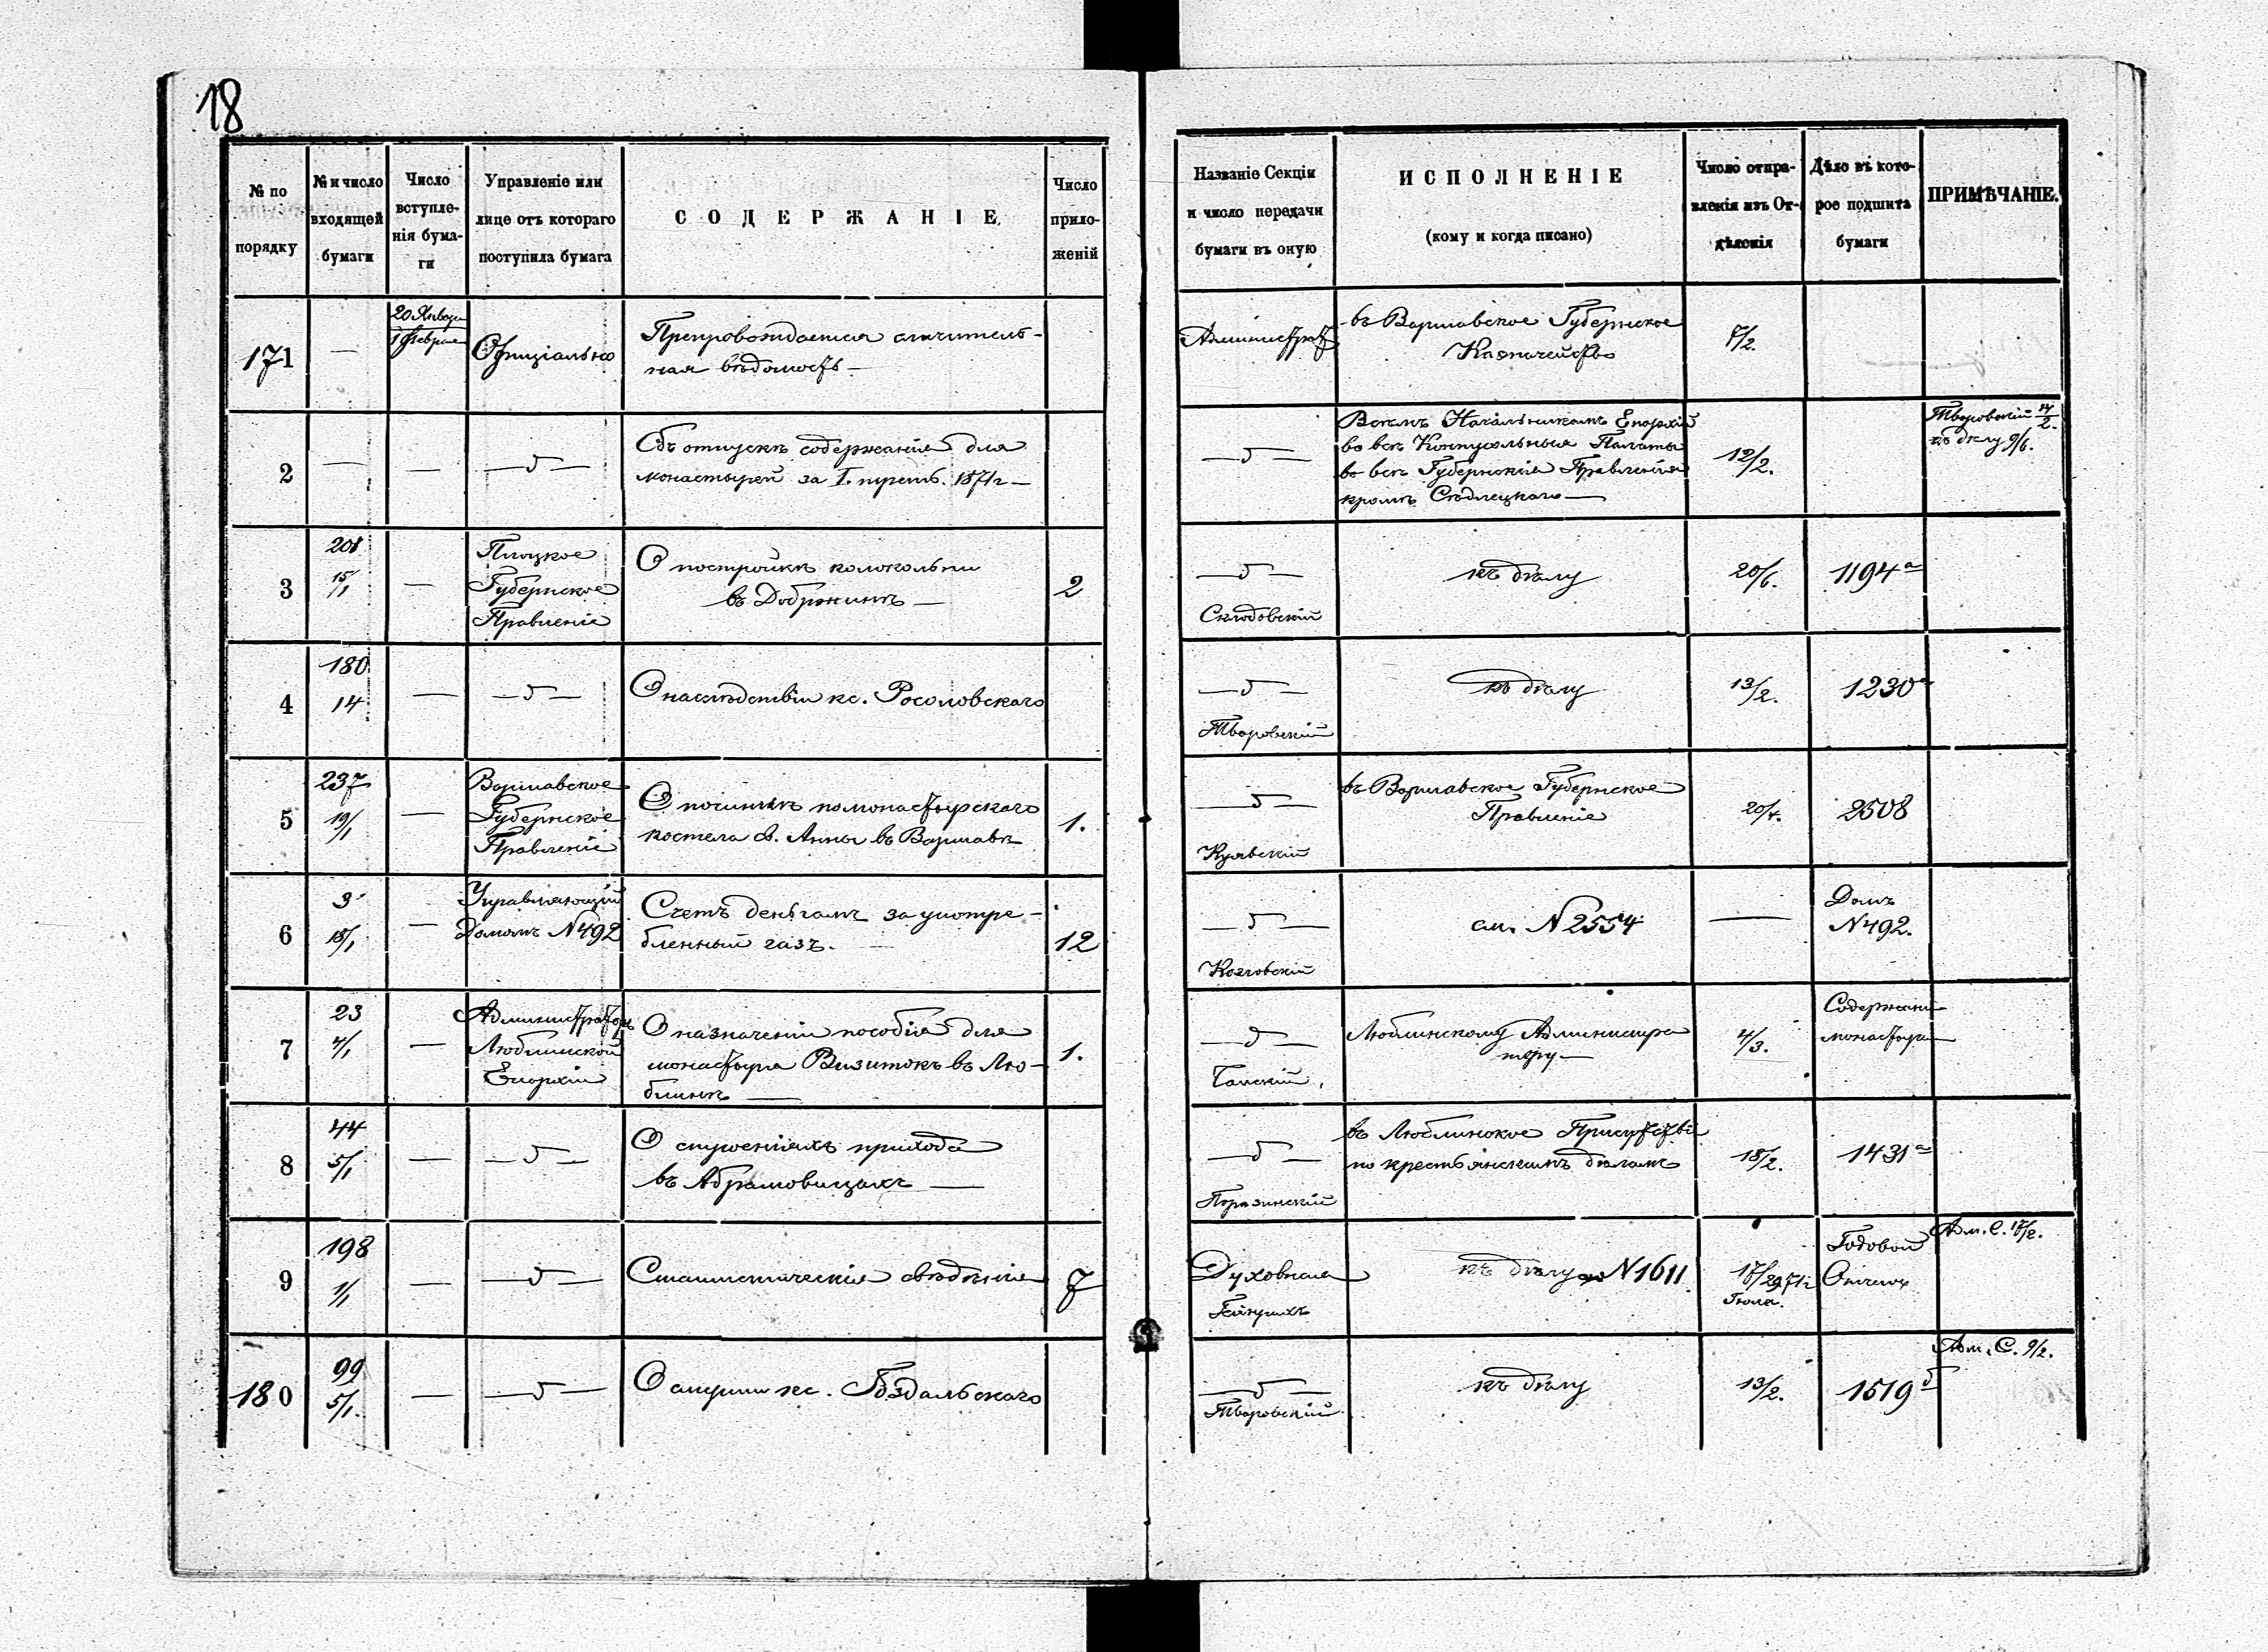 18
№ по порядку
№ и число входящей бумаги
Число вступле-
нія бума-
ги
Управленіе или
лице отъ котораго
поступила бумага
СОДЕРЖАНІЕ
Число
прило-
женій
Названіе Секціи
и число передачи
бумаги въ оную
ИСПОЛНЕНІЕ
(кому и когда писано)
Число отпра-
вленія изъ От-
дѣленія
Дѣло въ кото-
рое подшита
бумаги
ПРИМѢЧАНІЕ.
171
—
20 Января
1 Февраля
Офиціально
Препровождается
ная вѣдомость —
Администрат
въ Варшавское Губернское
Казначейство
7/2.
2
—
—
—„—
Объ отпускѣ содержанія для
монастырей за I. треть. 1871 г —
—„—
Всѣмъ Начальникамъ Епархій
во всѣ Контрольныя Палаты
во всѣ Губернскія Правленія
кромѣ Сѣдлецкаго —
12/2.
Творовскій 14/2.
къ дѣлу 9/6.
3
208
15/1
—
Плоцкое
Губернское
Правленіе
О постройкѣ колокольни
въ Добржинѣ —
2
—„—
Склодовскій
къ дѣлу
20/6.
1194 а
4
180
14
—
—„—
О наслѣдствѣ кс. Росоловскаго
—„—
Творовскій
къ дѣлу
13/2.
1230 а
5
237
19/1
—
Варшавское
Губернское
Правленіе
О починкѣ помонастырскаго
костела св. Анны въ Варшавѣ
1.
—„—
Куявскій
въ Варшавское Губернское
Правленіе
20/4.
2508
6
3
18/1
—
Управляющій
Домомъ N 492
Счетъ деньгамъ за употре-
бленный газъ. —
12
—„—
Козловскій
см. N 2554
—
Домъ
N 492.
7
23
4/1
—
Администраторъ
Люблинской
Епархіи
О назначеніи пособія для
монастыря Визитокъ въ Лю-
блинѣ —
1.
—„—
Люблинскому Администра
тору —
4/3.
Содержаніе
монастыря
8
44
5/1
—
—„—
О служеніяхъ прихода
въ Абрамовицахъ —
—„—
въ Люблинское Присутствіе
по крестьянскимъ дѣламъ
18/2.
1431 а
9
198
1/1
—
—„—
Статистическія свѣдѣнія
7
Духовная
къ дѣлу N 1611
17/29 71 г
Іюля.
Годовой
Отчетъ
Адм. С. 17/2.
180
99
5/1.
—
—„—
О смерти кс. Гоздальскаго
—„—
Творовскій
къ дѣлу
13/2.
1519 б
Адм. С. 9/2.